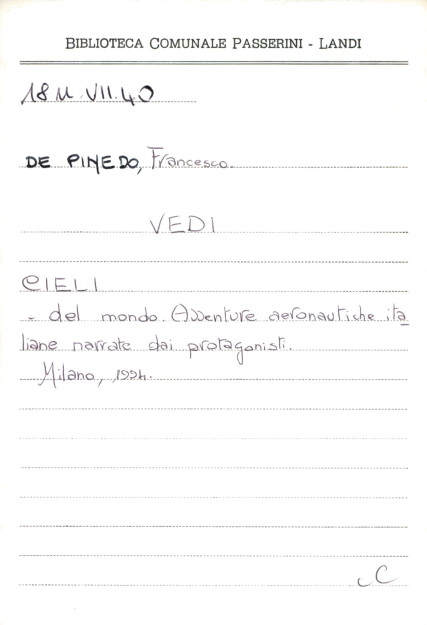 BIBLIOTECA COMUNALE PASSERINI - LANDI
18 M VII.40
DE PINEDO, Francesco.
VEDI
CIELI
- del mondo. Avventure aeronautiche ita
liane narrate dai protagonisti.
Milano, 1994.
C